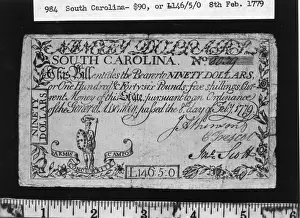 984 South Carolina- $90, or L146/5/0 8th Feb. 1779
NINETY DOLLARS
SOUTH CAROLINA. No
This Bill entitles the Bearer to NINETY DOLLARS,
or One Hundred & Fortysix Pounds, five shillings Current
Money of this State, pursuant to an Ordinance
of the General Assembly, passed the 8. day of Feb. 1779
NINETY DOLLARS
ARMIS
CAMPO
Jn: Scott
L146.5.0
1
2
3
4
5